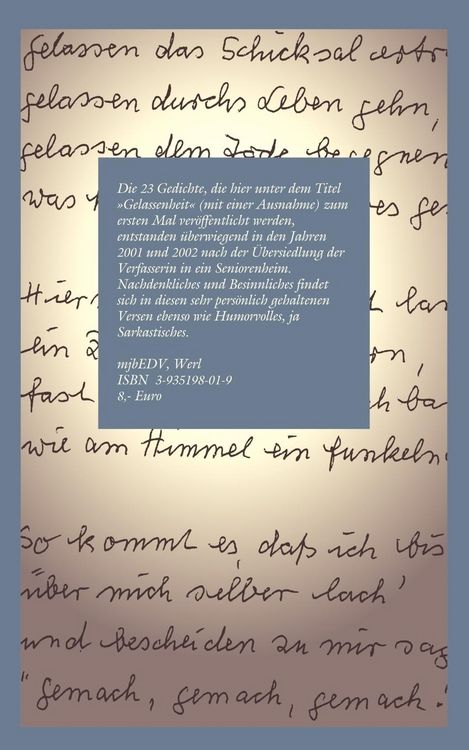 gelassen das Schicksal
gelassen durchs Leben gehn,
gelassen dem Tode begegnen
was
Hier
ein
fast
wie am Himmel ein funkeln
So kommt es, daß ich bis
über mich selber lach'
und bescheiden zu mir sag
"gemach, gemach, gemach."
Die 23 Gedichte, die hier unter dem Titel
»Gelassenheit« (mit einer Ausnahme) zum
ersten Mal veröffentlicht werden,
entstanden überwiegend in den Jahren
2001 und 2002 nach der Übersiedlung der
Verfasserin in ein Seniorenheim.
Nachdenkliches und Besinnliches findet
sich in diesen sehr persönlich gehaltenen
Versen ebenso wie Humorvolles, ja
Sarkastisches.
mjbEDV, Werl
ISBN 3-935198-01-9
8,- Euro